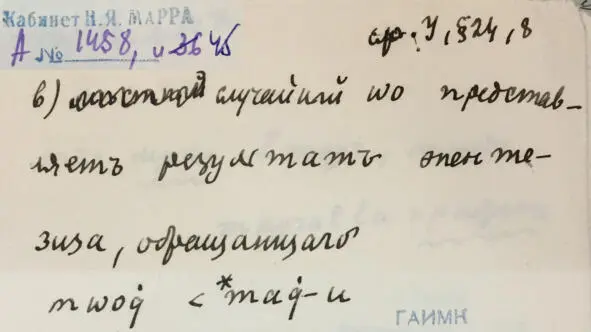 Кабинет Н.Я. МАРРА
А № 1458, и 3645
ср. У, §24, 8
в) случайный wo представ-
ляетъ результатъ эпенте-
зиса, обращающаго
тwоḋ < *таḋ-и
ГАИМК